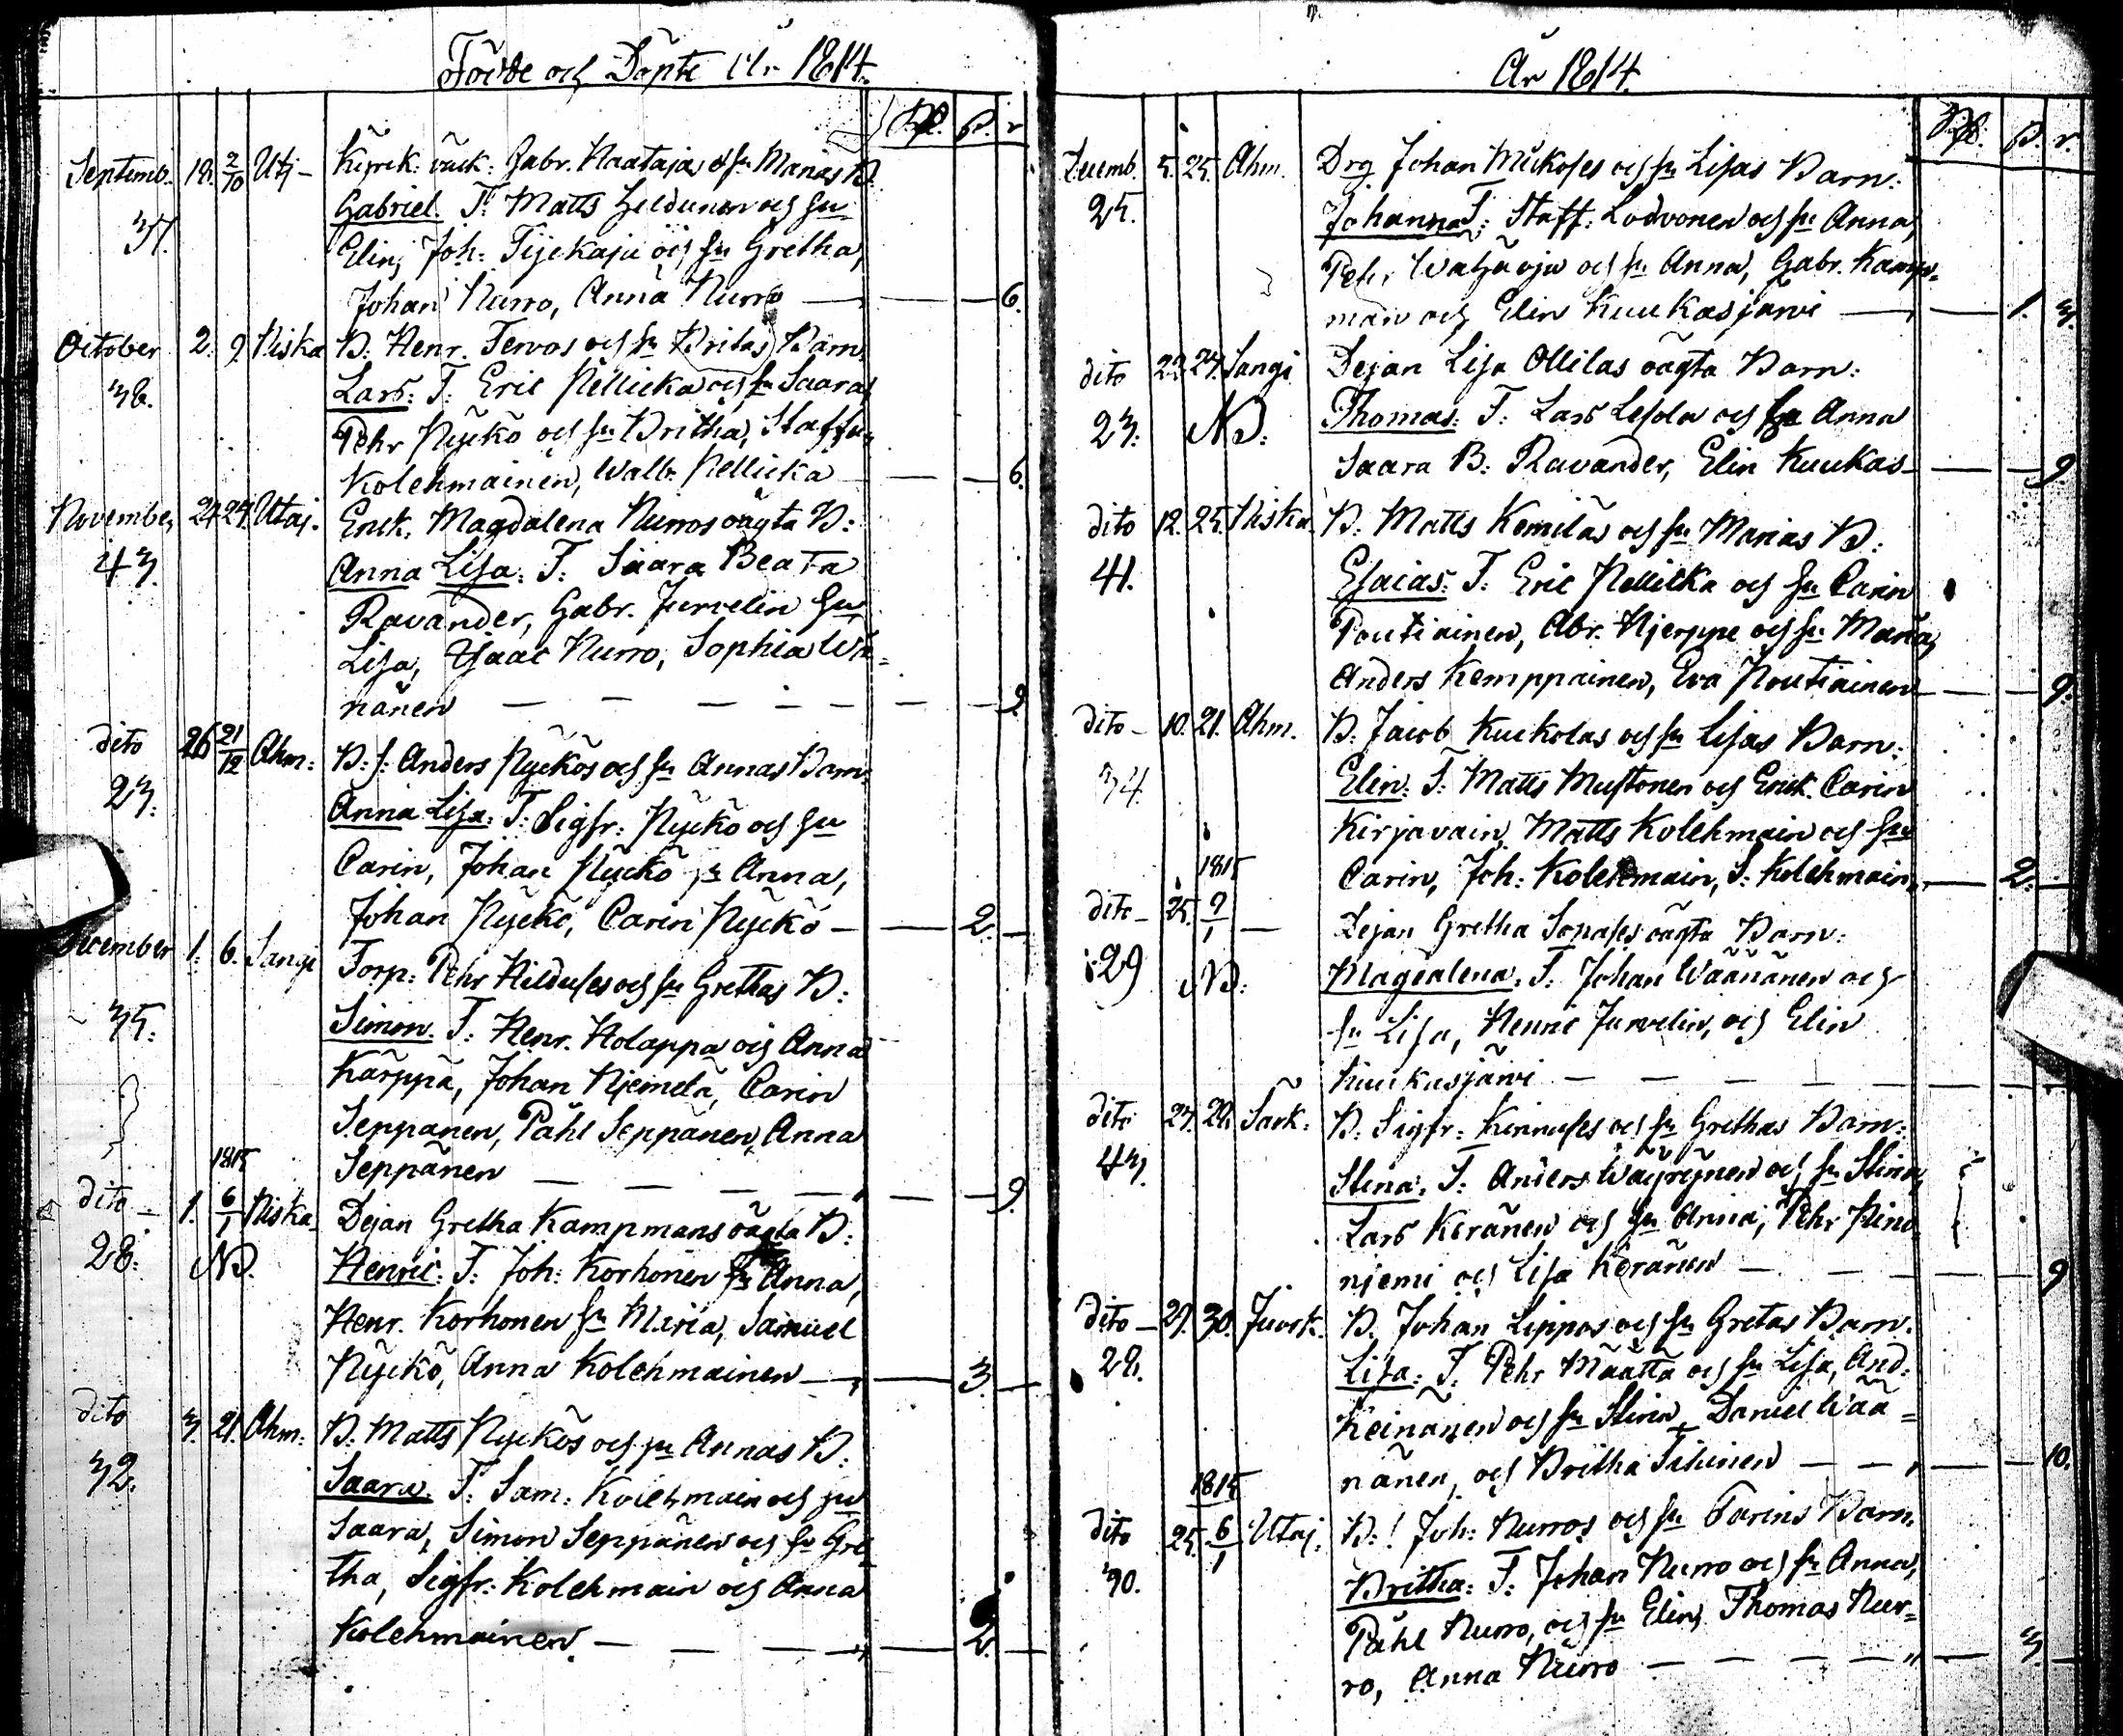 Födde och Döpte År 1814.
Rub. P. r.
Septemb. 18. 2/10 Utj- Kyrk. väck: Gabr. Haatajas och hu Marias B.
37. Gabriel. F: Matts Heldunen och hu
Elin, Joh: Tijekaju och hu Gretha,
Johan Nurro, Anna Nurro — 6.
October 2. 9 Niska B. Henr. Tervos och hu Britas Barn
38. Lars: F: Eric Pellicka och hu Saara,
Pehr Nyckö och hu Britha, Staffan
Kolehmainen, Walb. Pellicka — 6.
November 24 27. Utaj. Enck. Magdalena Nurros oägta B:
43. Anna Lisa: F: Saara Beata
Ravander, Gabr. Jurvelin hu
Lisa, Isaac Nurro, Sophia Wä=
nänen — 9.
dito 26 21/12 Ahm: B: S: Anders Nyckös och hu Annas Barn:
23. Anna Lisa: F: Sigfr: Nyckö och hu
Carin, Johan Nyckö hu Anna,
Johan Nyckö, Carin Nyckö — 2.
December 1. 6. Sangi Torp: Pehr Hilduses och hu Grethas B:
35. Simon: F: Henr. Holappa och Anna
Kärppä, Johan Njemelä, Carin
Seppänen, Påhl Seppänen, Anna
Seppänen — 9.
1815
dito 1. 6/1 Niska Dejan Gretha Kampmans oägta B:
28. NB. Henric: F: Joh: Korhonen hu Anna,
Henr. Korhonen hu Maria, Samuel
Nyckö, Anna Kolehmainen — 3.
dito 3. 21. Ahm: B. Matts Nyckös och hu Annas B:
32. Saara: F: Sam: Kolehmain och hu
Saara, Simon Seppänen och hu Gre
tha, Sigfr: Kolehmain och Anna
Kolehmainen. — 2.
År 1814.
Rub. P. r.
Decemb. 5. 25. Ahm. Drg Johan Mickoses och hu Lisas Barn:
25. Johanna: F: Staff: Lodvonen och hu Anna,
Pehr och hu Anna, Gabr. Kamp=
man och Elin Kuukasjärvi — 1. 3.
dito 22. 27. Sangi Dejan Lisa Ollilas oägta Barn:
23. NB: Thomas: F: Lars Lesola och hu Anna
Saara B: Ravander, Elin Kuukas — 9
dito 12. 25. Niska B. Matts Kemiläs och hu Marias B:
41. Esaias: F: Eric Pellicka och hu Carin
Poutiainen, Abr. Kjerppe och hu Maria,
Anders Kemppainen, Eva Poutiainen — 9.
dito 10. 21. Ahm. B. Jacob Kuckolas och hu Lisas Barn:
34. Elin: F: Matts Mustonen och Enck. Carin
Kirjavain, Matts Kolehmain och hu
Carin, Joh: Kolehmain, S. Kolehmain — 2.
1815
dito 25. 9/1 — Dejan Gretha Sopases oägta Barn:
29 NB: Magdalena: F: Johan Wäänänen och
hu Lisa, Henric Jurvelin, och Elin
Kuukasjärvi —
dito 27. 29. Säik: B. Sigfr: Kinnuses och hu Grethas Barn:
43. Stina: F: Anders Wäyrynen och hu Stina,
Lars Keränen och hu Anna, Pehr Hind
njemi och Lisa Keränen — 9
dito 29. 30. Juork: B. Johan Lippos och hu Gretas Barn.
28. Lisa: F: Pehr Määttä och hu Lisa, And:
Keinänen och hu Stina, Daniel Wää=
nänen, och Britha Tihinen — 10.
1815
dito 25. 6/1 Utaj. B: S Joh: Nurros och hu Carins Barn.
30. Britha: F: Johan Nurro och hu Anna,
Påhl Nurro, och hu Elin, Thomas Nur=
ro, Anna Nurro — 3.